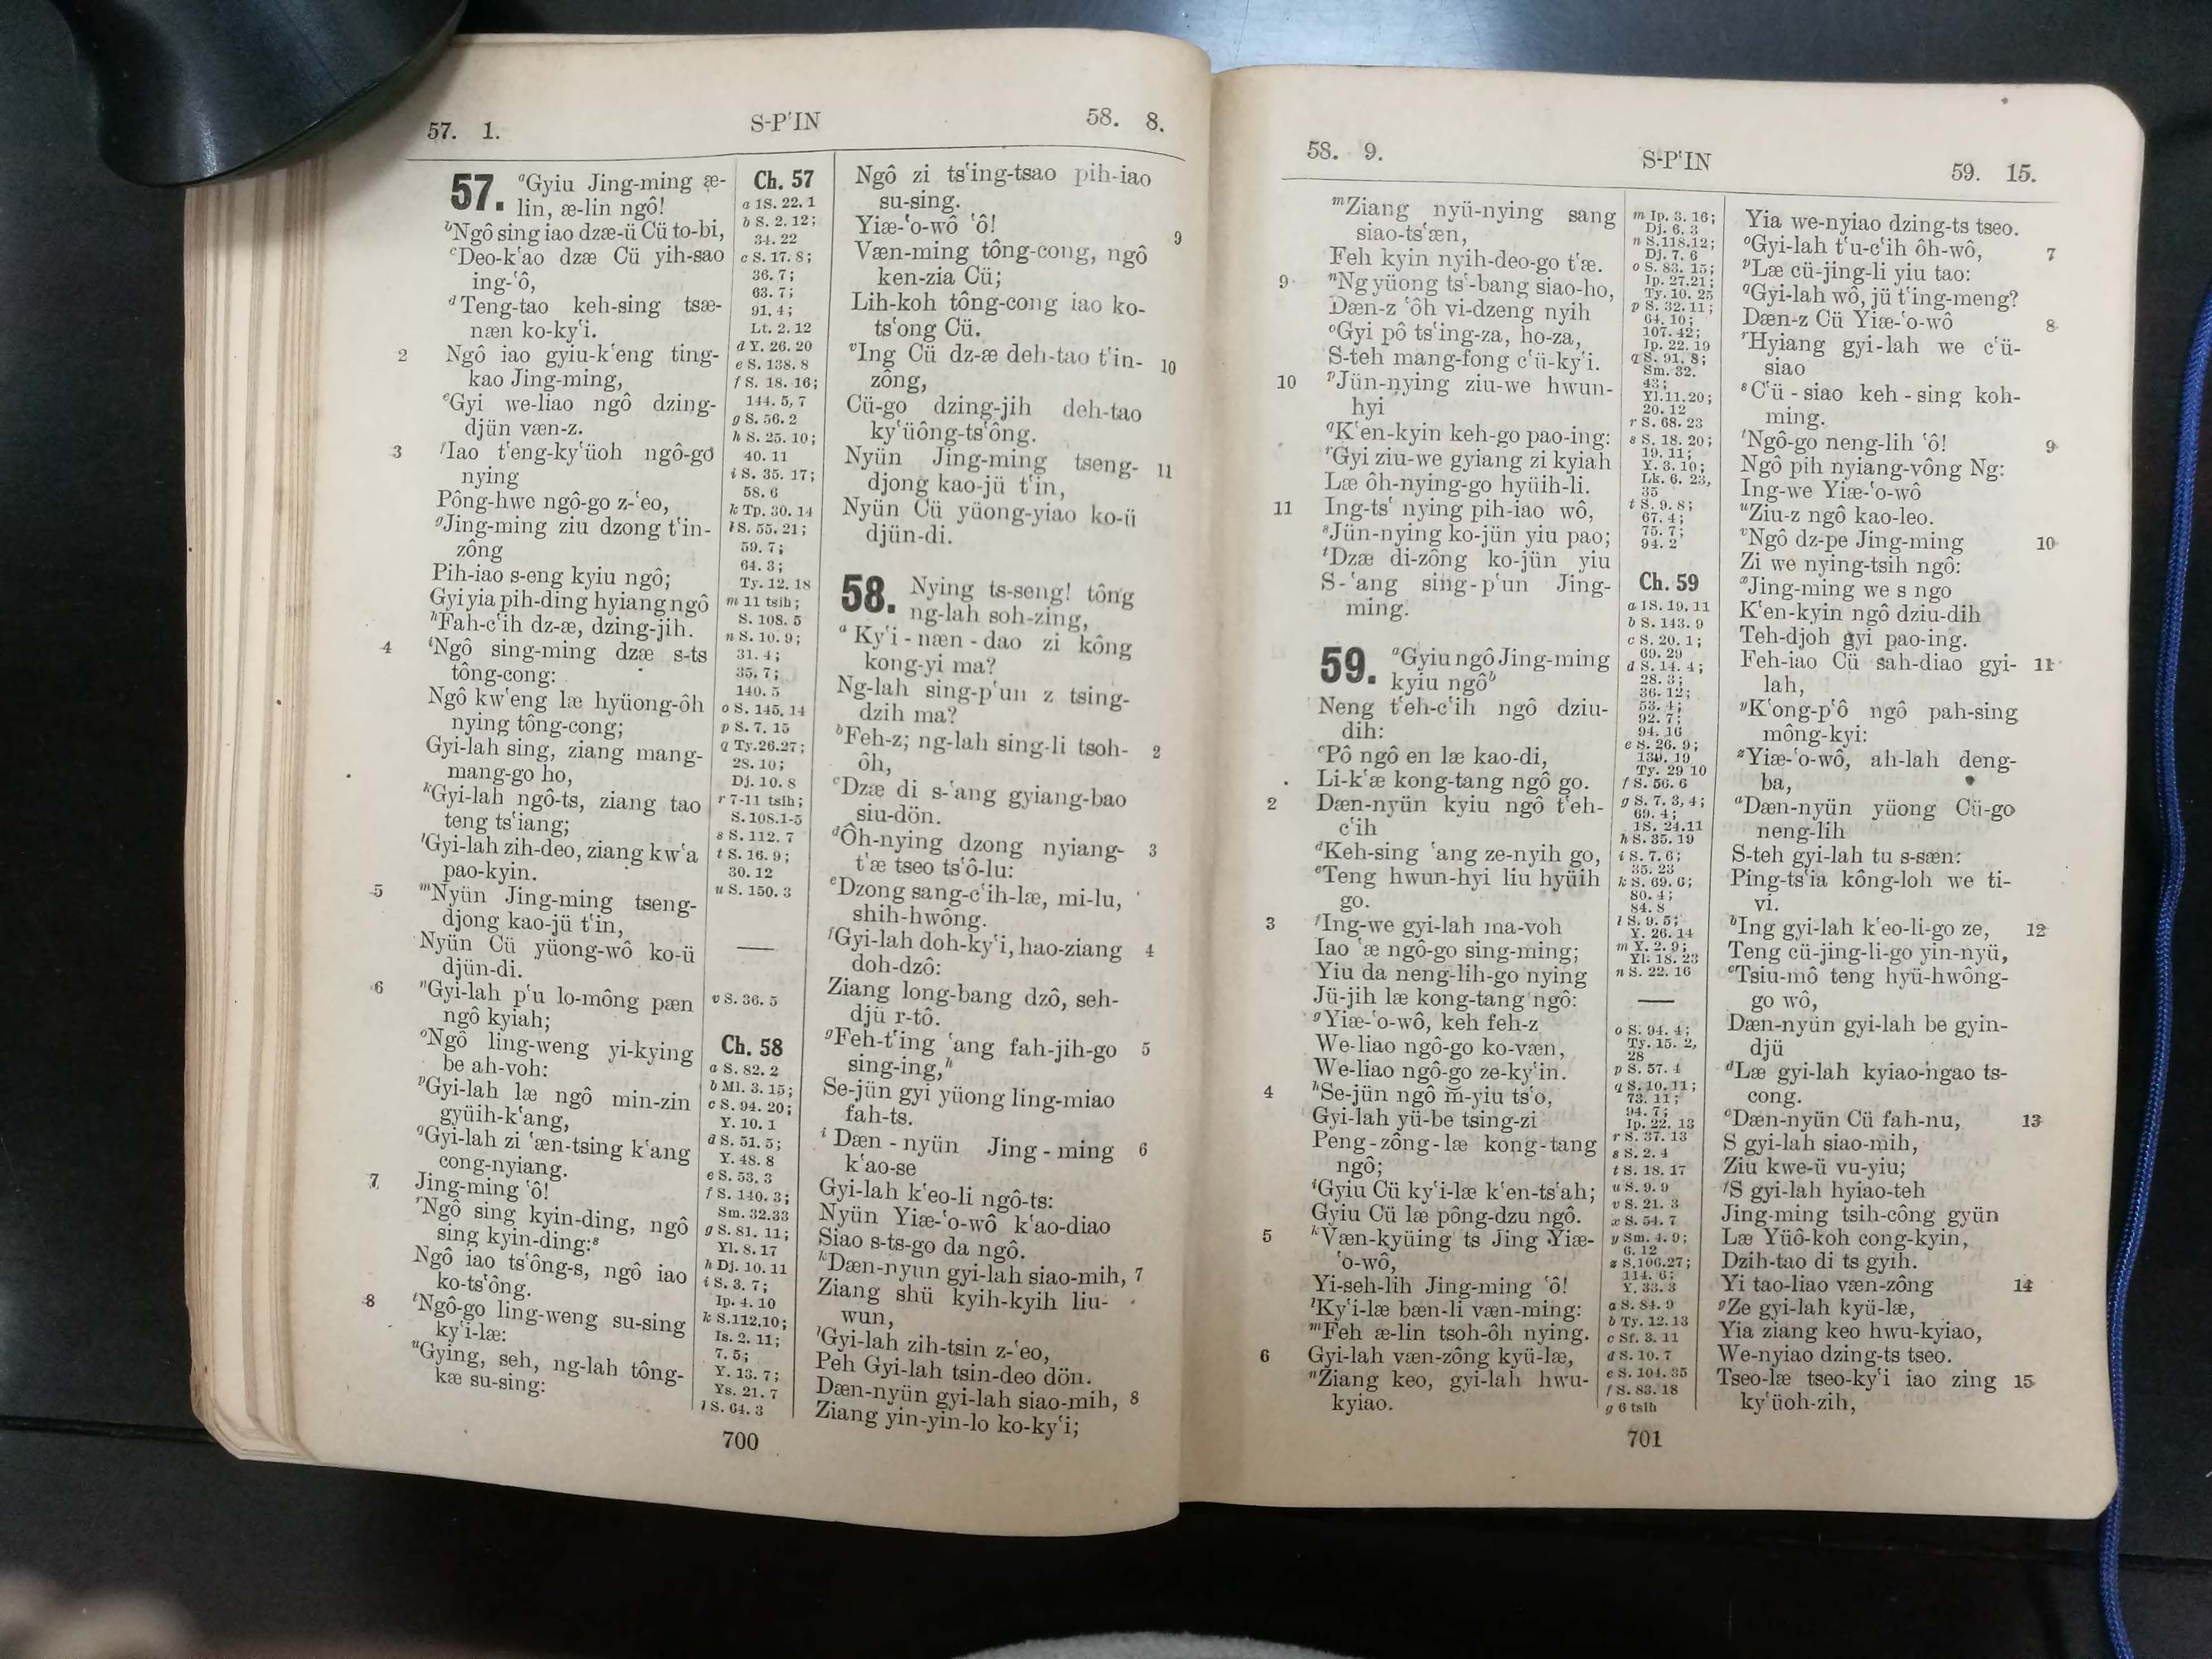 57. 1.
S-PʻIN
58. 8.
57. ᵃGyiu Jing-ming æ-
lin, æ-lin ngô!
ᵇNgô sing iao dzæ-ü Cü to-bi,
ᶜDeo-kʻao dzæ Cü yih-sao
ing-ʻô,
ᵈTeng-tao keh-sing tsæ-
næn ko-kyʻi.
2 Ngô iao gyiu-kʻeng ting-
kao Jing-ming,
ᵉGyi we-liao ngô dzing-
djün væn-z.
3 ᶠIao tʻeng-kyʻüoh ngô-go
nying
Pông-hwe ngô-go z-ʻeo,
ᵍJing-ming ziu dzong tʻin-
zông
Pih-iao s-eng kyiu ngô;
Gyi yia pih-ding hyiang ngô
ʰFah-cʻih dz-æ, dzing-jih.
4 ⁱNgô sing-ming dzæ s-ts
tông-cong:
Ngô kwʻeng læ hyüong-ôh
nying tông-cong;
Gyi-lah sing, ziang mang-
mang-go ho,
ᵏGyi-lah ngô-ts, ziang tao
teng tsʻiang;
ˡGyi-lah zih-deo, ziang kwʻa
pao-kyin.
5 ᵐNyün Jing-ming tseng-
djong kao-jü tʻin,
Nyün Cü yüong-wô ko-ü
djün-di.
6 ⁿGyi-lah pʻu lo-mông pæn
ngô kyiah;
ᵒNgô ling-weng yi-kying
be ah-voh:
ᵖGyi-lah læ ngô min-zin
gyüih-kʻang,
𐞥Gyi-lah zi ʻæn-tsing kʻang
cong-nyiang.
7 Jing-ming ʻô!
ʳNgô sing kyin-ding, ngô
sing kyin-ding:ˢ
Ngô iao tsʻông-s, ngô iao
ko-tsʻông.
8 ᵗNgô-go ling-weng su-sing
kyʻi-læ:
ᵘGying, seh, ng-lah tông-
kæ su-sing:
Ch. 57
a 1S. 22. 1
b S. 2. 12;
34. 22
c S. 17. 8;
36. 7;
63. 7;
91. 4;
Lt. 2. 12
d Y. 26. 20
e S. 138. 8
f S. 18. 16;
144. 5, 7
g S. 56. 2
h S. 25. 10;
40. 11
i S. 35. 17;
58. 6
k Tp. 30. 14
l S. 55. 21;
59. 7;
64. 3;
Ty. 12. 18
m 11 tsih;
S. 108. 5
n S. 10. 9;
31. 4;
35. 7;
140. 5
o S. 145. 14
p S. 7. 15
q Ty.26.27;
28. 10;
Dj. 10. 8
r 7-11 tsih;
S. 108.1-5
s S. 112. 7
t S. 16. 9;
30. 12
u S. 150. 3
v S. 36. 5
Ch. 58
a S. 82. 2
b Ml. 3. 15;
c S. 94. 20;
Y. 10. 1
d S. 51. 5;
Y. 48. 8
e S. 53. 3
f S. 140. 3;
Sm. 32.33
g S. 81. 11;
Yl. 8. 17
h Dj. 10. 11
i S. 3. 7;
Ip. 4. 10
k S.112.10;
Is. 2. 11;
7. 5;
Y. 13. 7;
Ys. 21. 7
l S. 64. 3
Ngô zi tsʻing-tsao pih-iao
su-sing.
Yiæ-ʻo-wô ʻô! 9
Væn-ming tông-cong, ngô
ken-zia Cü;
Lih-koh tông-cong iao ko-
tsʻong Cü.
ᵛIng Cü dz-æ deh-tao tʻin- 10
zông,
Cü-go dzing-jih deh-tao
kyʻüông-tsʻông.
Nyün Jing-ming tseng- 11
djong kao-jü tʻin,
Nyün Cü yüong-yiao ko-ü
djün-di.
58. Nying ts-seng! tông
ng-lah soh-zing,
ᵃKyʻi-næn-dao zi kông
kong-yi ma?
Ng-lah sing-pʻun z tsing-
dzih ma?
ᵇFeh-z; ng-lah sing-li tsoh- 2
ôh,
ᶜDzæ di s-ʻang gyiang-bao
siu-dön.
ᵈÔh-nying dzong nyiang- 3
tʻæ tseo tsʻô-lu:
ᵉDzong sang-cʻih-læ, mi-lu,
shih-hwông.
ᶠGyi-lah doh-kyʻi, hao-ziang 4
doh-dzô:
Ziang long-bang dzô, seh-
djü r-tô.
ᵍFeh-tʻing ʻang fah-jih-go 5
sing-ing,ʰ
Se-jün gyi yüong ling-miao
fah-ts.
ⁱDæn-nyün Jing-ming 6
kʻao-se
Gyi-lah kʻeo-li ngô-ts:
Nyün Yiæ-ʻo-wô kʻao-diao
Siao s-ts-go da ngô.
ᵏDæn-nyun gyi-lah siao-mih, 7
Ziang shü kyih-kyih liu-
wun,
ˡGyi-lah zih-tsin z-ʻeo,
Peh Gyi-lah tsin-deo dön.
Dæn-nyün gyi-lah siao-mih, 8
Ziang yin-yin-lo ko-kyʻi;
700
58. 9.
S-PʻIN
59. 15.
ᵐZiang nyü-nying sang
siao-tsʻæn,
Feh kyin nyih-deo-go tʻæ.
9 ⁿNg yüong tsʻ-bang siao-ho,
Dæn-z ʻôh vi-dzeng nyih
ᵒGyi pô tsʻing-za, ho-za,
S-teh mang-fong cʻü-kyʻi.
10 ᵖJün-nying ziu-we hwun-
hyi
𐞥Kʻen-kyin keh-go pao-ing:
ʳGyi ziu-we gyiang zi kyiah
Læ ôh-nying-go hyüih-li.
11 Ing-tsʻ nying pih-iao wô,
ˢJün-nying ko-jün yiu pao;
ᵗDzæ di-zông ko-jün yiu
S-ʻang sing-pʻun Jing-
ming.
59. ᵃGyiu ngô Jing-ming
kyiu ngôᵇ
Neng tʻeh-cʻih ngô dziu-
dih:
ᶜPô ngô en læ kao-di,
Li-kʻæ kong-tang ngô go.
2 Dæn-nyün kyiu ngô tʻeh-
cʻih
ᵈKeh-sing ʻang ze-nyih go,
ᵉTeng hwun-hyi liu hyüih
go.
3 ᶠIng-we gyi-lah ma-voh
Iao ʻæ ngô-go sing-ming;
Yiu da neng-lih-go nying
Jü-jih læ kong-tang ngô:
ᵍYiæ-ʻo-wô, keh feh-z
We-liao ngô-go ko-væn,
We-liao ngô-go ze-kyʻin.
4 ʰSe-jün ngô m̄-yiu tsʻo,
Gyi-lah yü-be tsing-zi
Peng-zông-læ kong-tang
ngô;
ⁱGyiu Cü kyʻi-læ kʻen-tsʻah;
Gyiu Cü læ pông-dzu ngô.
5 ᵏVæn-kyüing ts Jing Yiæ-
ʻo-wô,
Yi-seh-lih Jing-ming ʻô!
ˡKyʻi-læ bæn-li væn-ming:
ᵐFeh æ-lin tsoh-ôh nying.
6 Gyi-lah væn-zông kyü-læ,
ⁿZiang keo, gyi-lah hwu-
kyiao.
m Ip. 3. 16;
Dj. 6. 3
n S.118.12;
Dj. 7. 6
o S. 83. 15;
Ip. 27.21;
Ty. 10. 25
p S. 32. 11;
64. 10;
107. 42;
Ip. 22. 19
q S. 91. 8;
Sm. 32.
43;
Yl.11.20;
20. 12
r S. 68. 23
s S. 18. 20;
19. 11;
Y. 3. 10;
Lk. 6. 23,
35
t S. 9. 8;
67. 4;
75. 7;
94. 2
Ch. 59
a 1S. 19. 11
b S. 143. 9
c S. 20. 1;
69. 29
d S. 14. 4;
28. 3;
36. 12;
53. 4;
92. 7;
94. 16
e S. 26. 9;
139. 19
Ty. 29 10
f S. 56. 6
g S. 7. 3, 4;
69. 4;
1S. 24.11
h S. 35. 19
i S. 7. 6;
35. 23
k S. 69. 6;
80. 4;
84. 8
l S. 9. 5;
Y. 26. 14
m Y. 2. 9;
Yl. 18. 23
n S. 22. 16
o S. 94. 4;
Ty. 15. 2,
28
p S. 57. 4
q S. 10. 11;
73. 11;
94. 7;
Ip. 22. 13
r S. 37. 13
s S. 2. 4
t S. 18. 17
u S. 9. 9
v S. 21. 3
x S. 54. 7
y Sm. 4. 9;
6. 12
z S.106.27;
114. 6;
Y. 33. 3
a S. 84. 9
b Ty. 12. 13
c Sf. 3. 11
d S. 10. 7
e S. 104. 35
f S. 83. 18
g 6 tsih
Yia we-nyiao dzing-ts tseo.
ᵒGyi-lah tʻu-cʻih ôh-wô, 7
ᵖLæ cü-jing-li yiu tao:
𐞥Gyi-lah wô, jü tʻing-meng?
Dæn-z Cü Yiæ-ʻo-wô 8
ʳHyiang gyi-lah we cʻü-
siao
ˢCʻü-siao keh-sing koh-
ming.
ᵗNgô-go neng-lih ʻô! 9
Ngô pih nyiang-vông Ng:
Ing-we Yiæ-ʻo-wô
ᵘZiu-z ngô kao-leo.
ᵛNgô dz-pe Jing-ming 10
Zi we nying-tsih ngô:
ˣJing-ming we s ngo
Kʻen-kyin ngô dziu-dih
Teh-djoh gyi pao-ing.
Feh-iao Cü sah-diao gyi- 11
lah,
ʸKʻong-pʻô ngô pah-sing
mông-kyi:
ᶻYiæ-ʻo-wô, ah-lah deng-
ba,
ᵃDæn-nyün yüong Cü-go
neng-lih
S-teh gyi-lah tu s-sæn:
Ping-tsʻia kông-loh we ti-
vi.
ᵇIng gyi-lah kʻeo-li-go ze, 12
Teng cü-jing-li-go yin-nyü,
ᶜTsiu-mô teng hyü-hwông-
go wô,
Dæn-nyün gyi-lah be gyin-
djü
ᵈLæ gyi-lah kyiao-ngao ts-
cong.
ᵉDæn-nyün Cü fah-nu, 13
S gyi-lah siao-mih,
Ziu kwe-ü vu-yiu;
ᶠS gyi-lah hyiao-teh
Jing-ming tsih-công gyün
Læ Yüô-koh cong-kyin,
Dzih-tao di ts gyih.
Yi tao-liao væn-zông 14
ᵍZe gyi-lah kyü-læ,
Yia ziang keo hwu-kyiao,
We-nyiao dzing-ts tseo.
Tseo-læ tseo-kyʻi iao zing 15
kyʻüoh-zih,
701